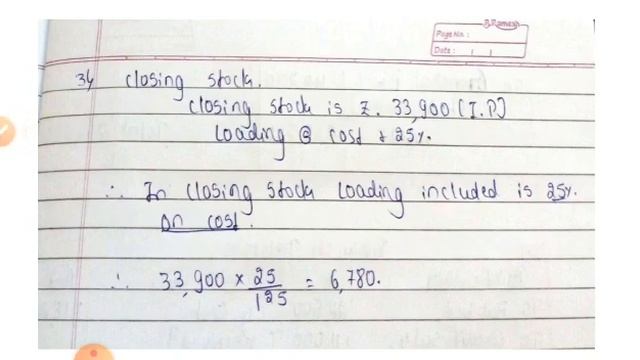 B.Ramesh
Page No :
Date :
3) closing stock.
closing stock is ₹. 33,900 (I.P)
Loading @ cost + 25%.
∴ In closing stock Loading included is 25%.
on cost.
∴ 33,900 × 25/125 = 6,780.